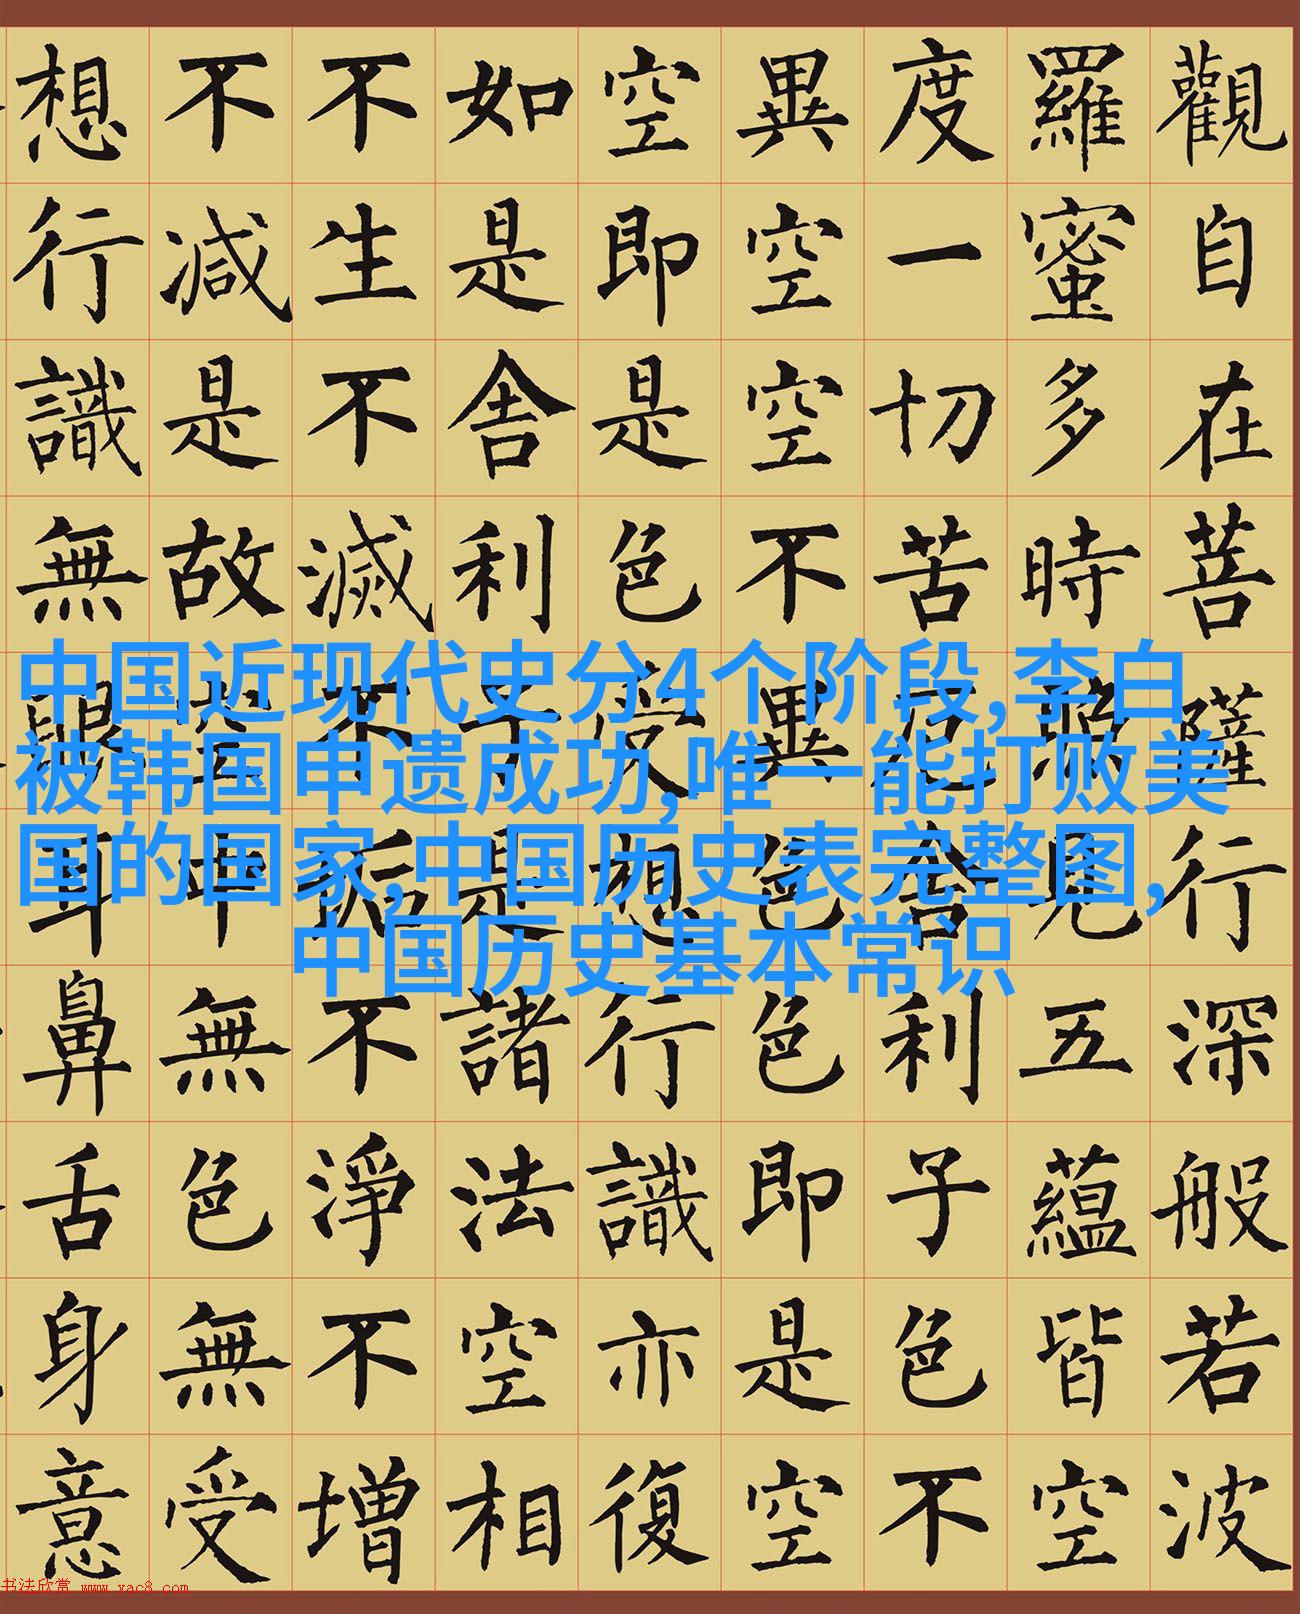 觀自在菩薩行深般若波
羅蜜多時照見五蘊皆空
度一切苦厄舍利子色不
異空空不異色色即是空
空即是色受想行識亦復
如是舍利子是諸法空相
不生不滅不垢不淨不增
不減是故空中無色無受
想行識無眼耳鼻舌身意
中国近现代史分4个阶段,李白
被韩国申遗成功,唯一能打败美
国的国家,中国历史表完整图,
中国历史基本常识
书法欣赏 www.yac8.com